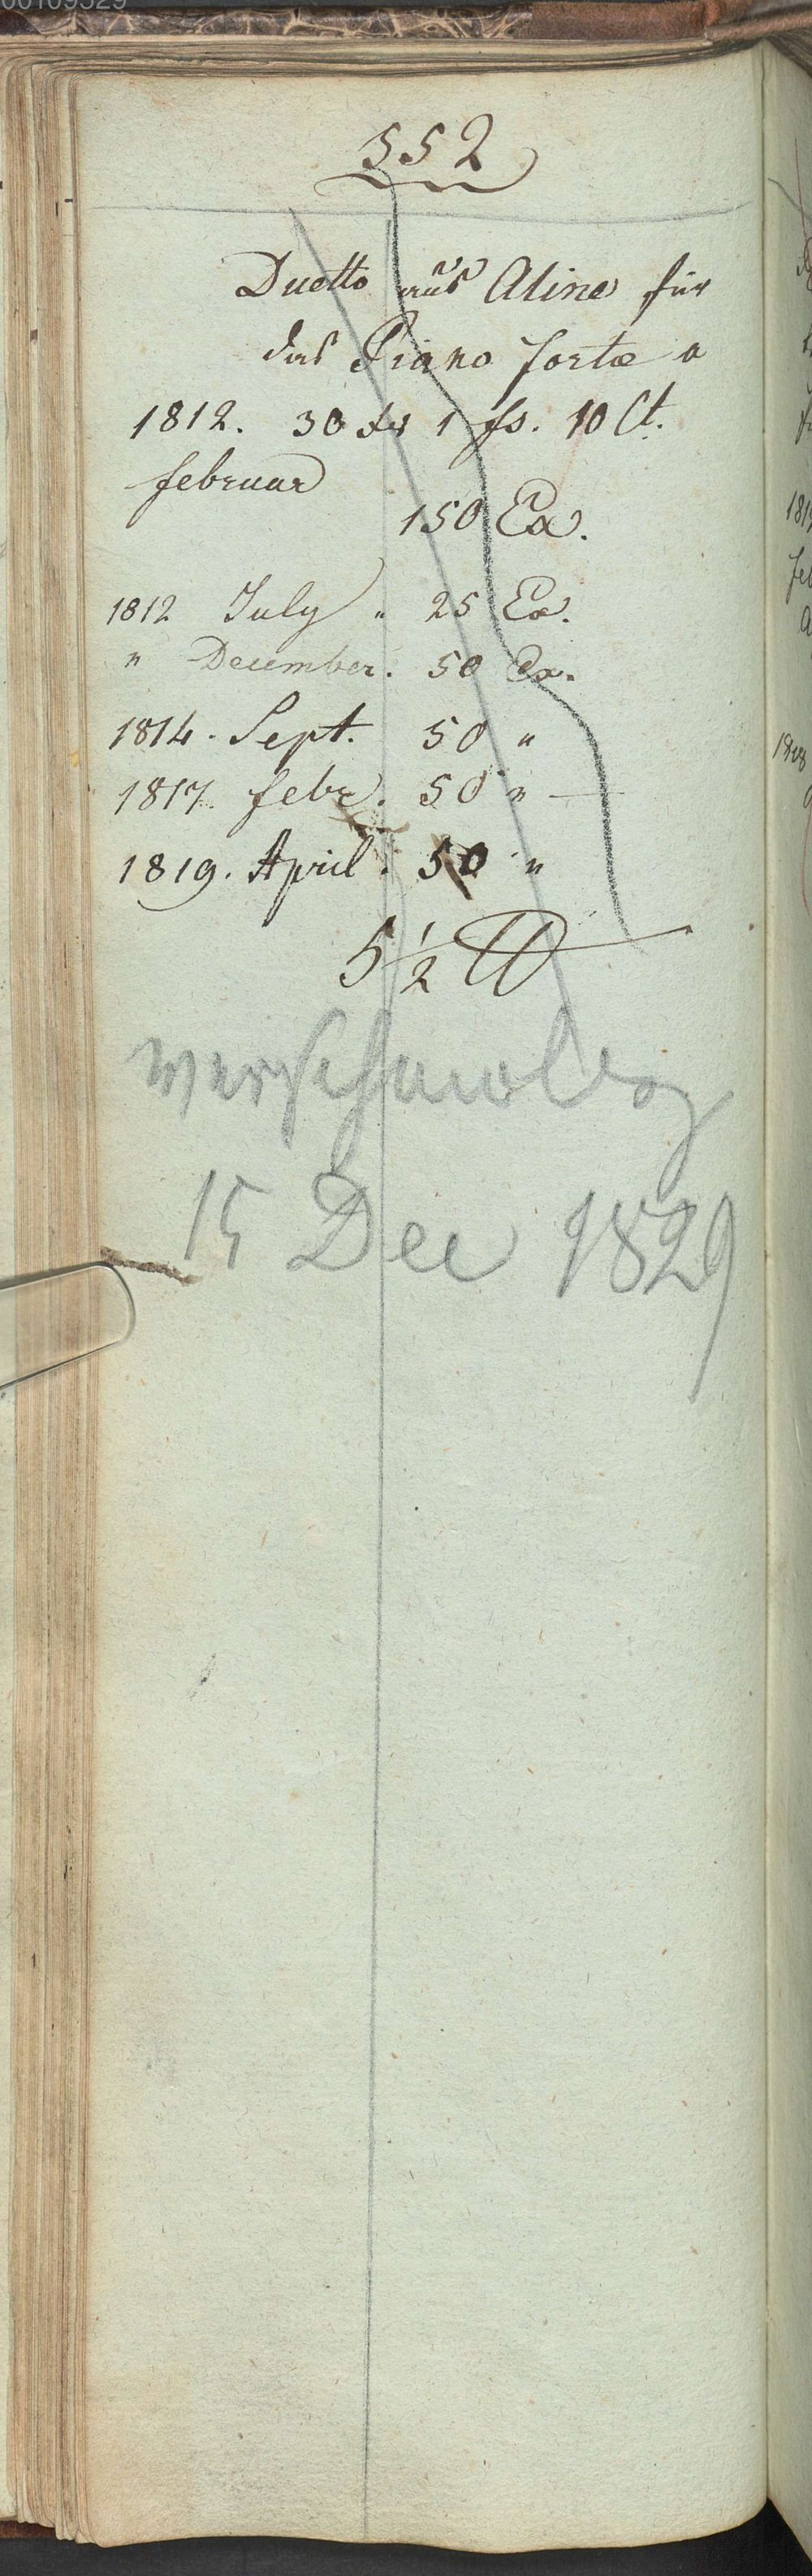 552
Duetto aus Aline für
das Piano forte a
1812. 30 xr 1 fs. 10 Ct.
februar
150 Ex.
1812 July " 25 Ex.
" December. 50 Ex.
1814. Sept. 50 "
1817. febr. 50 " —
1819. April. 50 "
5 1/2 ℔
verschmolzen
15 Dec 1829